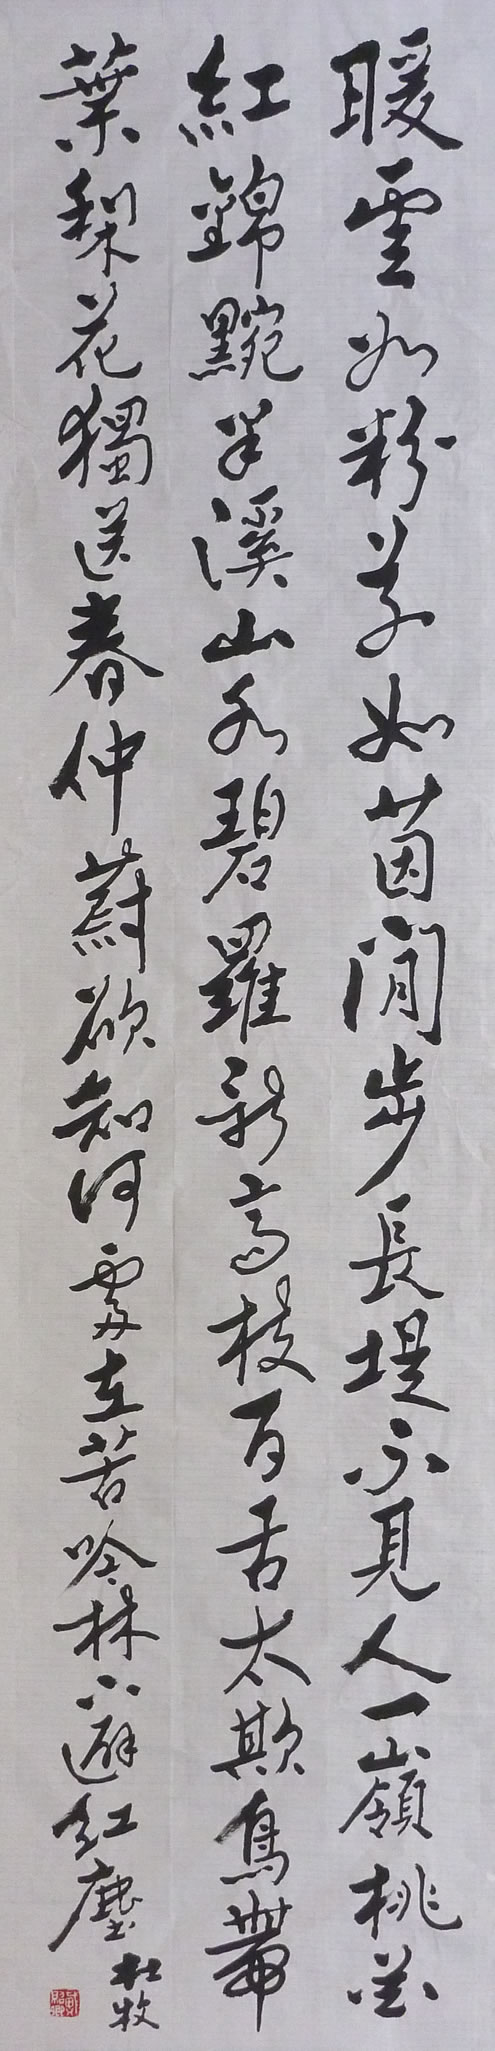 暖雲如粉草如茵閒步長堤不見人一嶺桃花
紅錦黦半溪山水碧羅新高枝百舌太欺鳥帶
葉梨花獨送春仲蔚欲知何處在苦吟林下避紅塵
杜牧